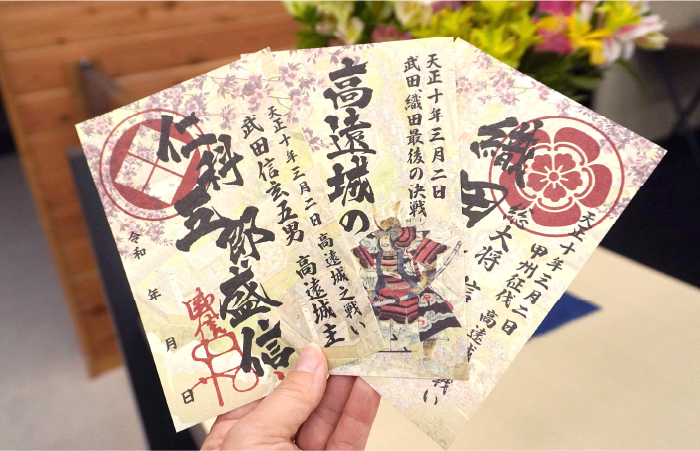 仁科五郎盛信
天正十年三月二日 高遠城之戦い
武田信玄五男 高遠城主
令和 年 月 日
天正十年三月二日
武田 織田最後の決戦
高遠城の
天正十年三月二日
甲州征伐 高遠 戦い
総大将
織田 信